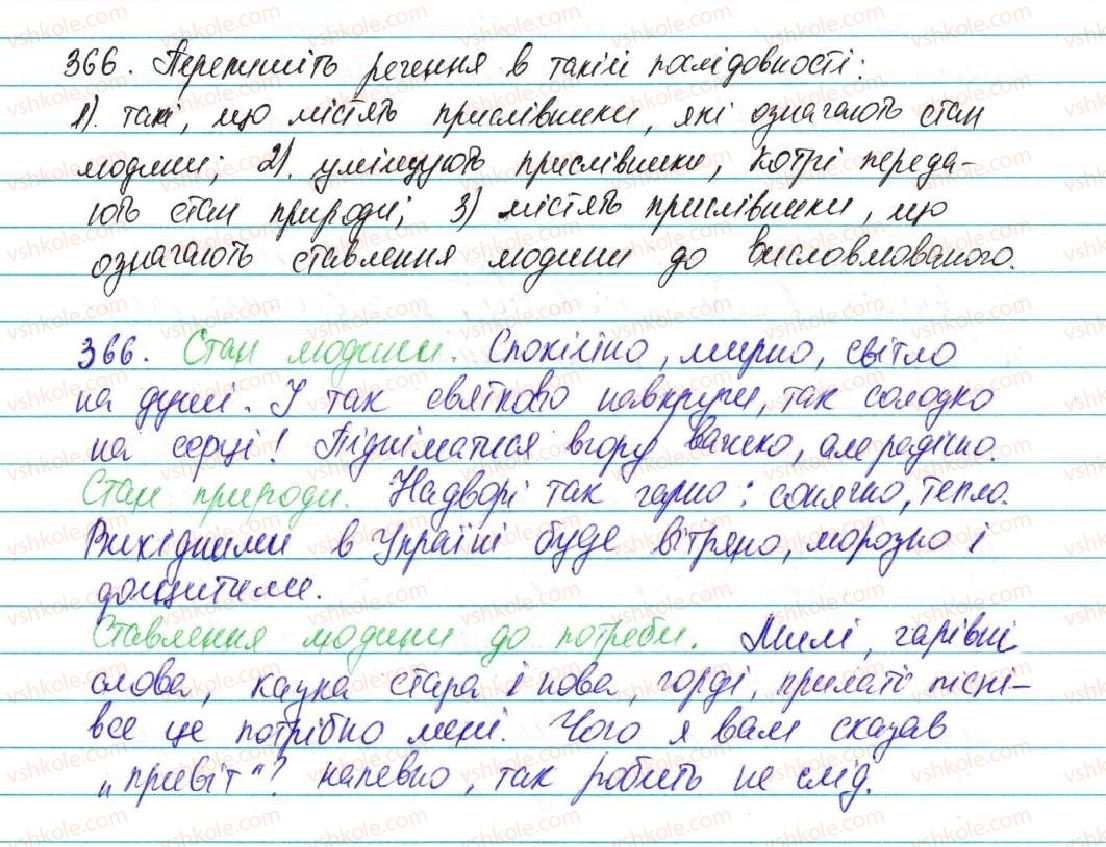 366. Перепишіть речення в такій послідовності:
1). такі, що містять прислівники, які означають стан
людини; 2). уміщують прислівники, котрі переда-
ють стан природи; 3) містять прислівники, що
означають ставлення людини до висловлюваного.
366. Стан людини. Спокійно, мирно, світло
на душі. І так святково навкруги, так солодко
на серці! Підніматися вгору важко, але радісно.
Стан природи. Надворі так гарно: сонячно, тепло.
Вихідними в Україні буде вітряно, морозно і
дощитиме.
Ставлення людини до потреби. Милі, чарівні
слова, казка стара і нова, горді, крилаті пісні-
все це потрібно мені. Чого я вам сказав
„привіт"? напевно, так робить не слід.